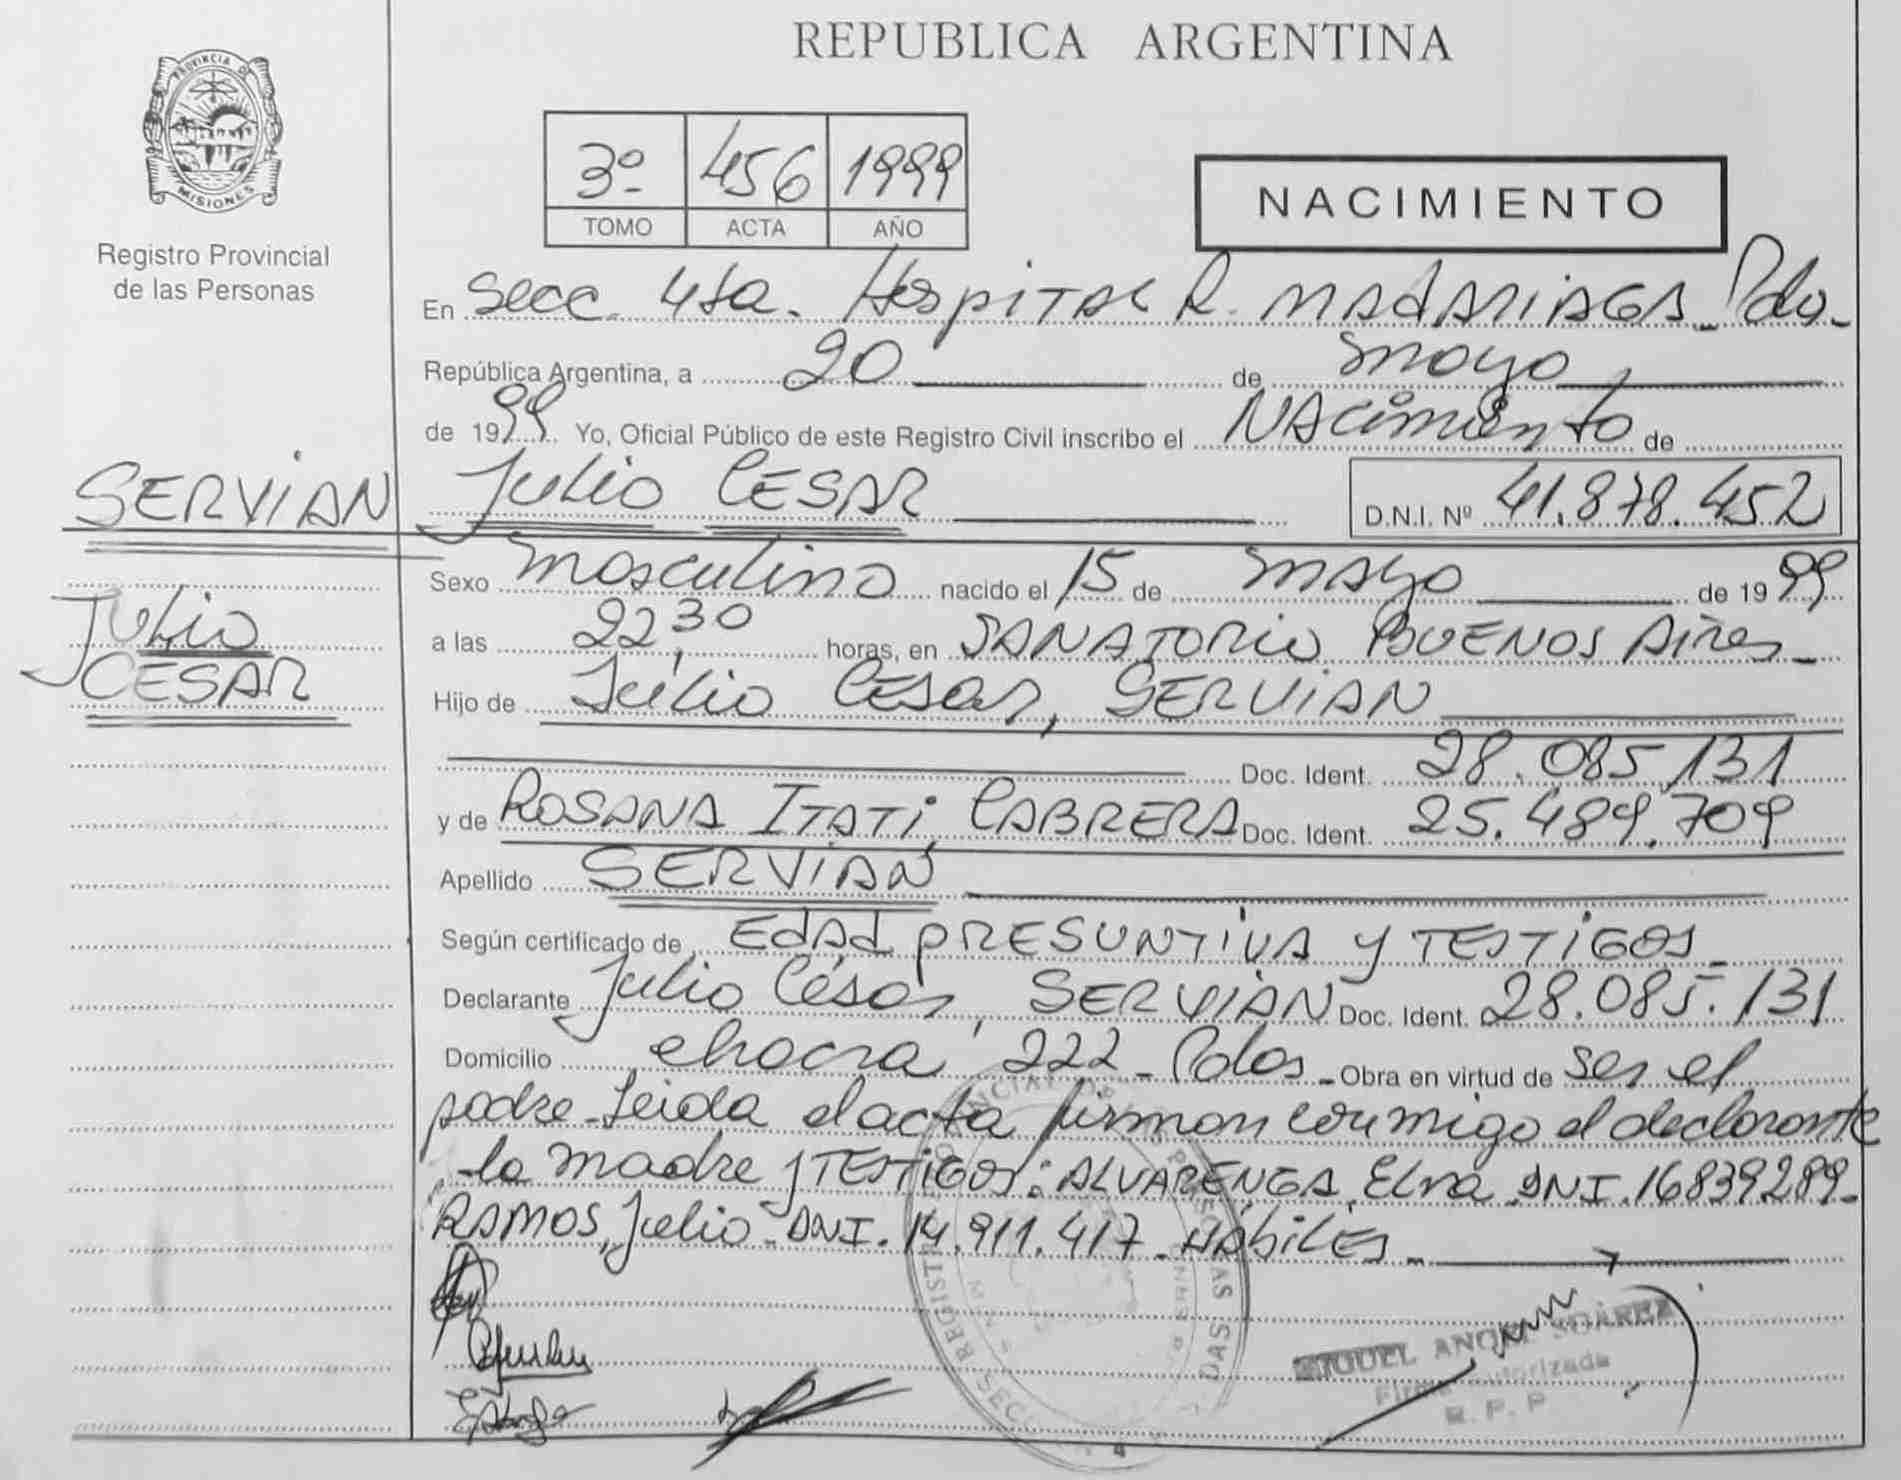 REPUBLICA ARGENTINA
PROVINCIA DE
MISIONES
Registro Provincial
de las Personas
3º 456 1999
TOMO ACTA AÑO
NACIMIENTO
En Secc. 4ta. Hospital R. MADARIAGA - Pdas -
República Argentina, a 20 de mayo
de 1999. Yo, Oficial Público de este Registro Civil inscribo el NAcimiento de
SERVIAN Julio CESAR D.N.I. Nº 41.878.452
Julio
CESAR
Sexo masculino nacido el 15 de mayo de 1999
a las 22,30 horas, en SANATORio BUENOS Aires -
Hijo de Julio Cesar, SERVIAN
Doc. Ident. 28.085.131
y de ROSANA ITATi, CABRERA Doc. Ident. 25.489.709
Apellido SERVIAN
Según certificado de EdAd PRESUNTiVA y TESTiGOS -
Declarante Julio César, SERVIAN Doc. Ident. 28.085.131
Domicilio chacra 222 - Pdas - Obra en virtud de ser el
padre - Leida el acta firman conmigo el declarante
la madre y TESTiGOS: ALVARENGA, Elva DNI. 16839289 -
RAMOS, Julio - DNI. 14.911.417 - HábiLES -
MIGUEL ANGEL SUAREZ
Firma Autorizada
R. P. P.